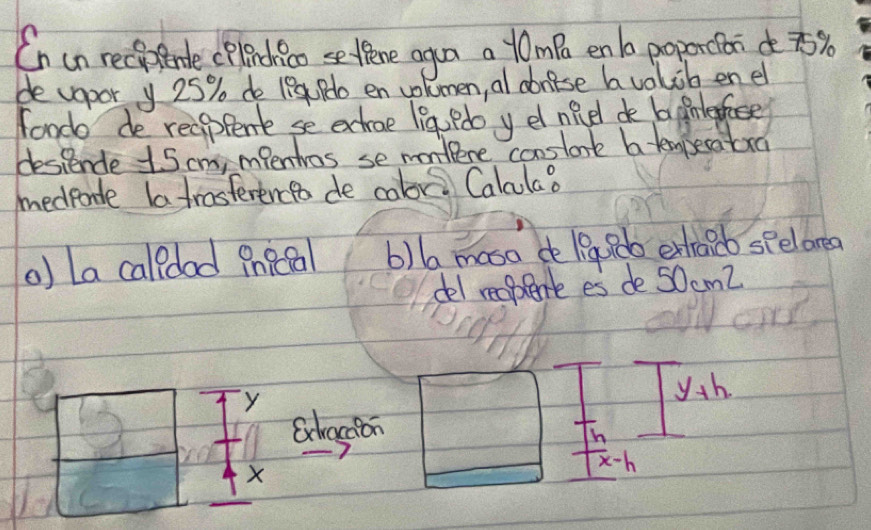 En un recipiente cilíndrico se tiene agua a 10 mPa en la proporción de 75%
de vapor y 25% de líquido en volumen, al abrirse la valvúla en el
fondo de recipiente se extrae líquido y el nivel de la interfase
desiende 15 cm, mientras se mantiene constante la temperatura
mediante la trasferencia de calor. Calcula:
a) La calidad inicial b) la masa de líquido extraido si el area
del recipiente es de 50 cm2
y
Extracción
x
h
x-h
y+h.